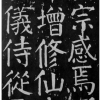 宗感焉
增修仙
儀侍從